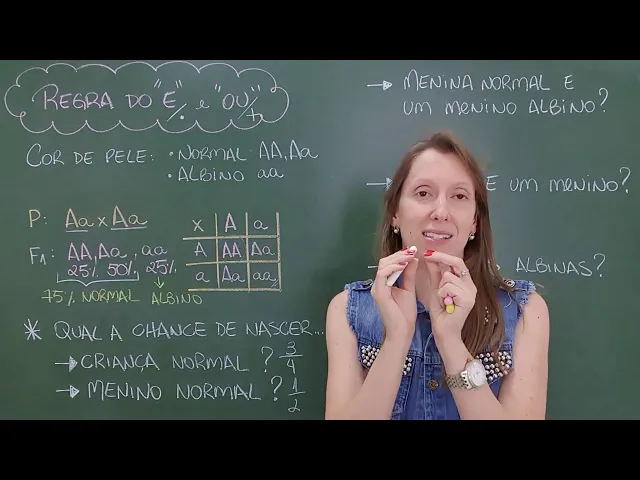 REGRA DO "E"/. e "OU"/+
COR DE PELE: • NORMAL AA, Aa
• ALBINO aa
P: Aa x Aa
F1: AA, Aa, aa
25% 50% 25%
75% NORMAL ALBINO
x A a
A AA Aa
a Aa aa
* QUAL A CHANCE DE NASCER...
→ CRIANÇA NORMAL ? 3/4
→ MENINO NORMAL ? 1/2
→ MENINA NORMAL E
UM MENINO ALBINO?
E UM MENINO?
ALBINAS?